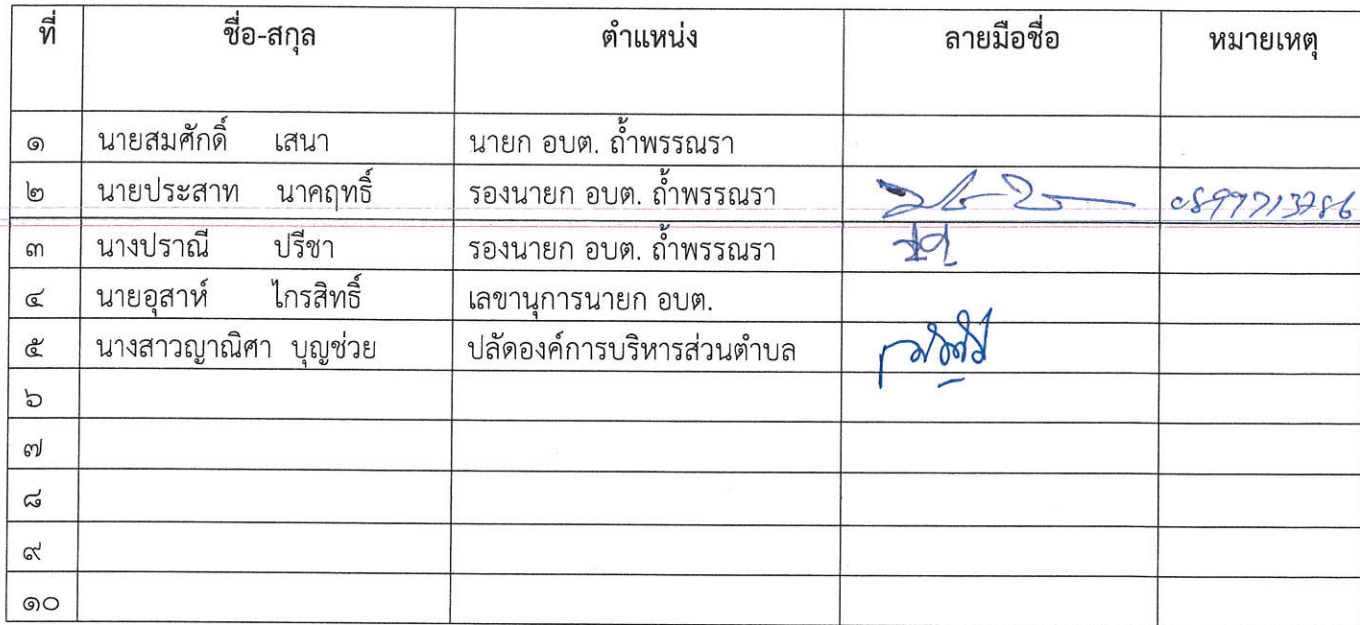 ที่ ชื่อ-สกุล ตำแหน่ง ลายมือชื่อ หมายเหตุ
๑ นายสมศักดิ์ เสนา นายก อบต. ถ้ำพรรณรา
๒ นายประสาท นาคฤทธิ์ รองนายก อบต. ถ้ำพรรณรา 0899713786
๓ นางปราณี ปรีชา รองนายก อบต. ถ้ำพรรณรา
๔ นายอุสาห์ ไกรสิทธิ์ เลขานุการนายก อบต.
๕ นางสาวญาณิศา บุญช่วย ปลัดองค์การบริหารส่วนตำบล
๖
๗
๘
๙
๑๐